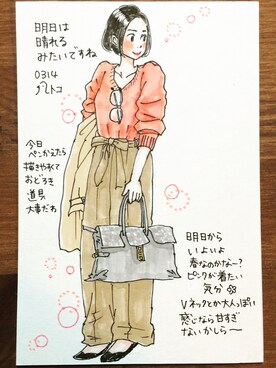 明日は
晴れる
みたいですね
0314
今日
ペンかえたら
描きやすくて
おどろき
道具
大事だわ
明日から
いよいよ
春なのかな〜?
ピンクが着たい
気分
Vネックとか大人っぽい
感じなら甘すぎ
ないかしら〜